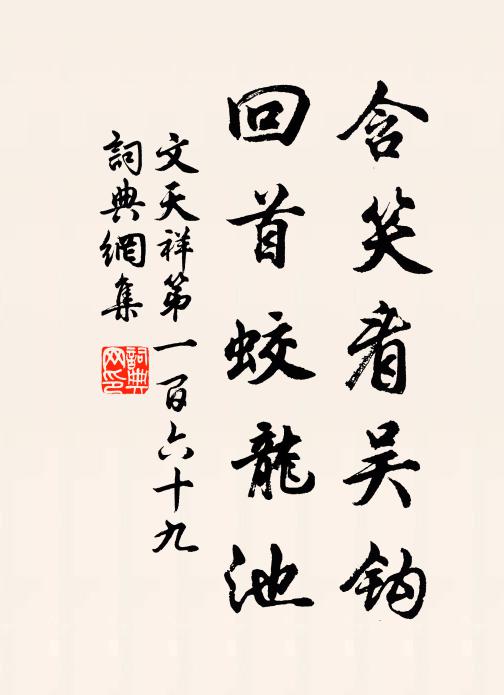 含笑看吴钩
回首蛟龍池
文天祥第一百六十九
詞典網集
詞典网印